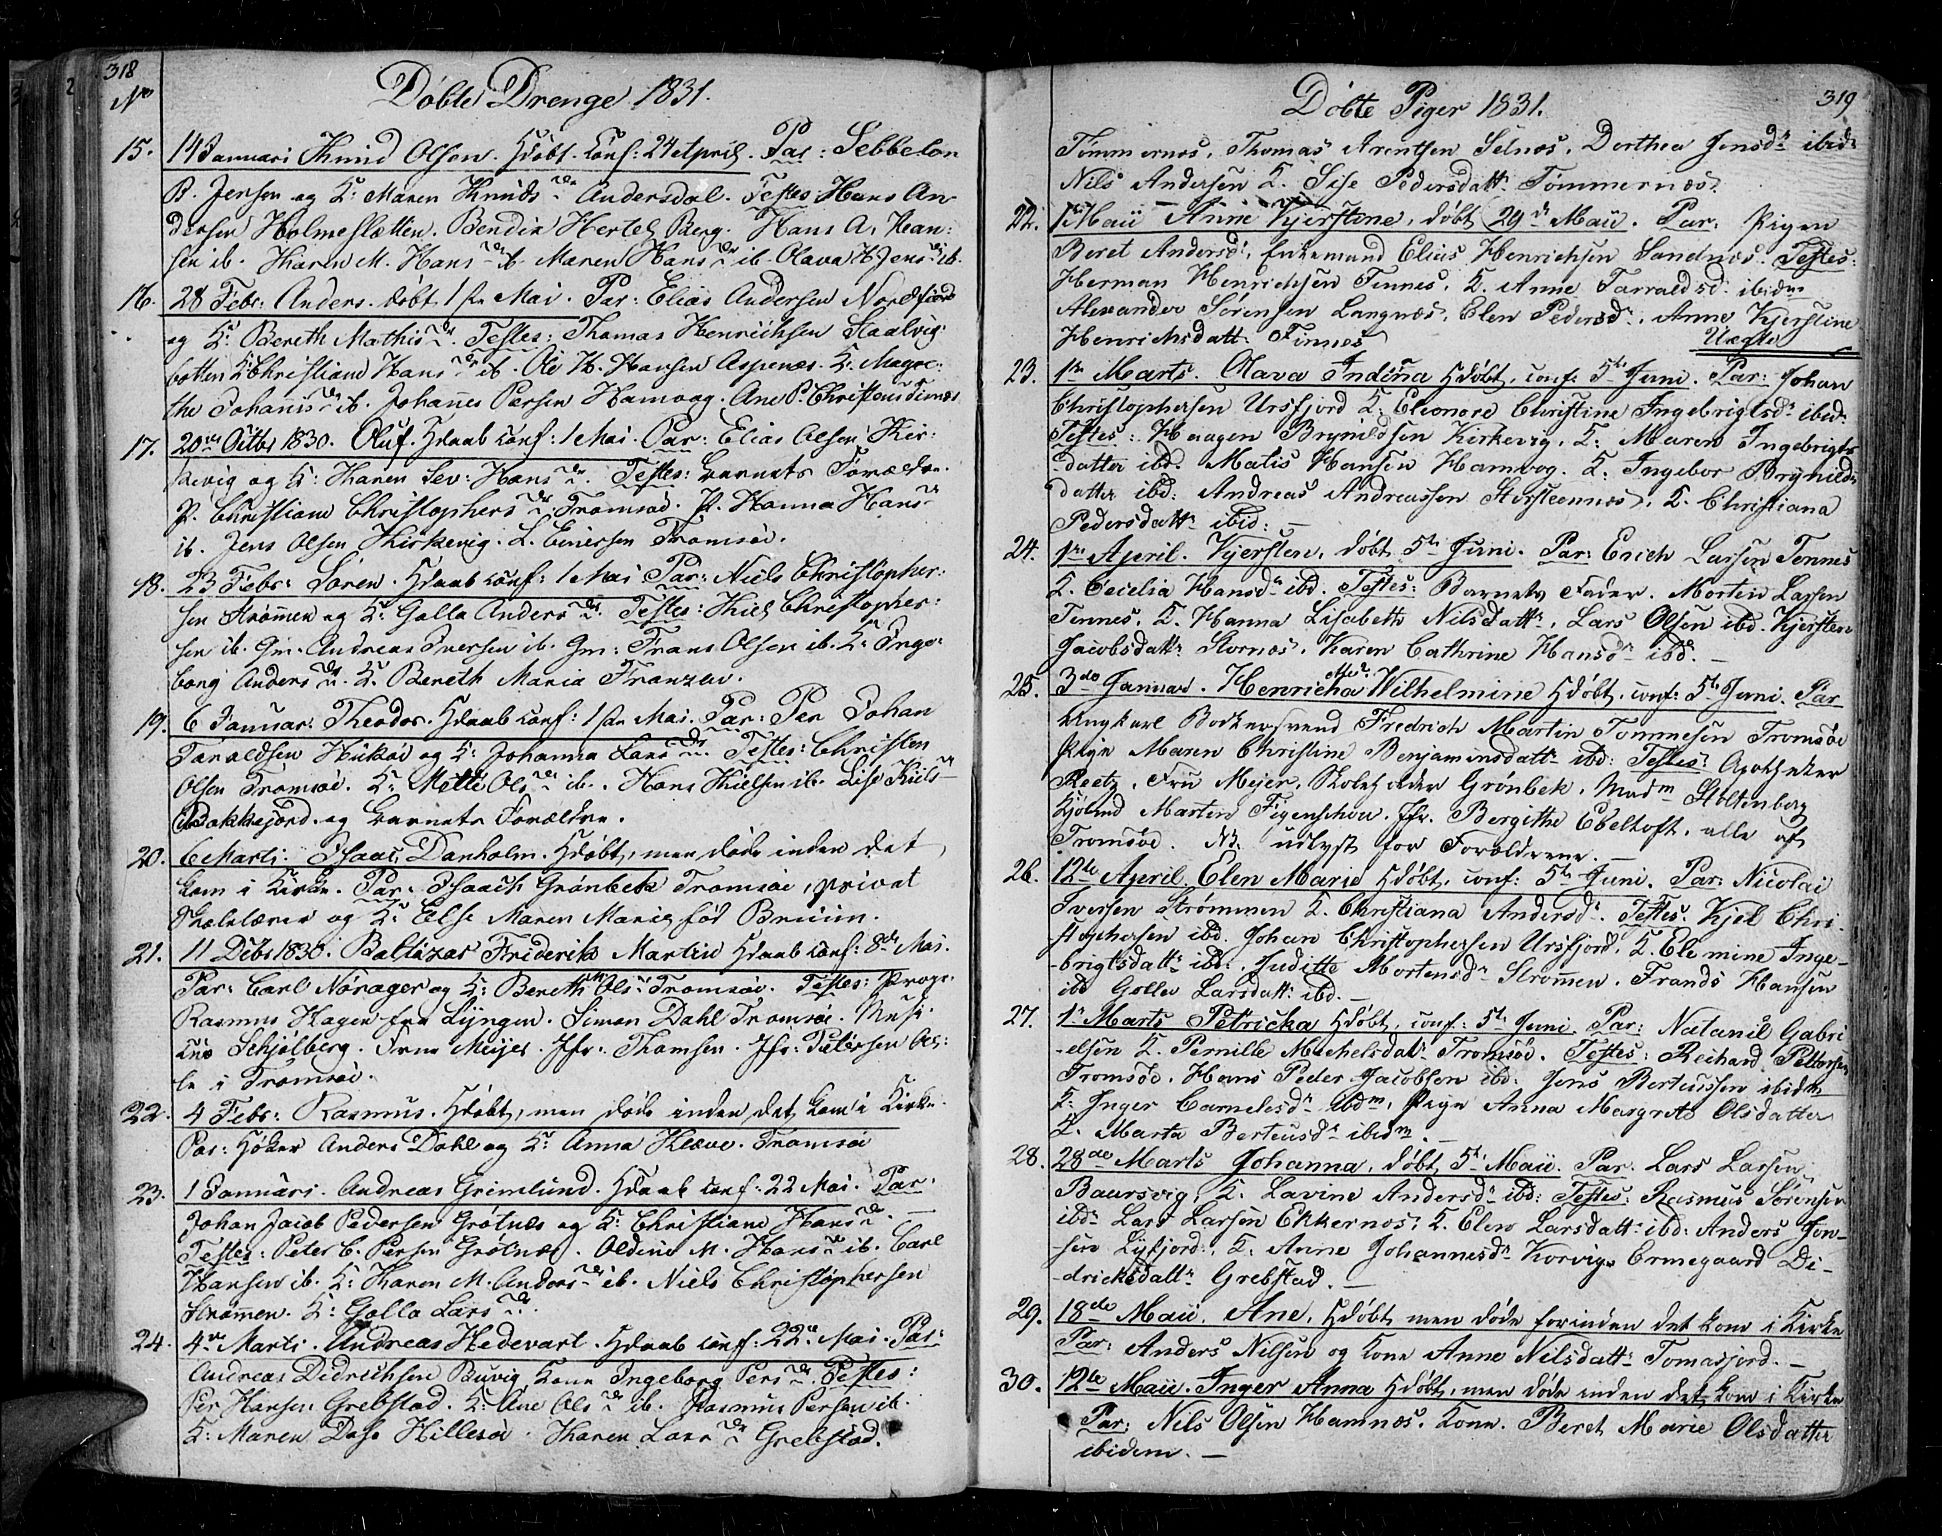 318
No
Døbte Drenge 1831.
15. 14 Januari Knud Olsen. Hdøbt. Conf: 24 April. Par: Sebbelon
B. Jensen og K: Maren Knudsdr Andersdal. Testes: Hans An
dersen Holmesletten. Bendix Hertel Berg. Hans A. Han:
sen ib. Karen M. Hansdr ib. Maren Hansdr ib. Olava H. Jensdr ib.
16. 28 Febr: Anders. døbt 1ste Mai. Par: Elias Andersen Nordfjord
og K: Bereth Mathisdr. Testes: Thomas Henrichsen Skaalvig:
botten K Christiane Hansdr ib. Ole H. Hansen Aspenæs. K: Magre:
the Johanisdr ib. Johannes Persen Hamvog. Ane P. Christensd Finnes
17. 20de Octbr 1830. Oluf. Hdaab Conf: 1 Mai. Par: Elias Olsen Kir:
kevig og K: Karen Sev: Hansdr. Testes: Barnets Forældre.
P. Christiane Christophersdr Tromsøe. P. Hanna Hansdr
ib. Jens Olsen Kirkevig. L. Einersen Tromsøe.
18. 23 Febr: Sören. Hdaab Conf: 1 Mai Par: Niels Christopher:
sen Strømmen og K: Golla Andersdr. Testes: Kiel Christopher:
sen ib. Gm. Andreas Iversen ib. Gm: Frans Olsen ib. K: Inge
borg Andersdr. K. Bereth Maria Franzdr.
19. 6 Januar. Theodor. Hdaab Conf: 1ste Mai. Par: Per Johan
Taraldsen Hukøe og K: Johanna Larsdr. Testes: Christen
Olsen Tromsøe. K: Mette Olsdr ib. Hans Kielsen ib. Lise Kielsdr
Bakkejord. og Barnets Forældre.
20. 6 Marti. Isaac Danholm. Hdøbt, men døde inden det
kom i Kirke. Par: Isaach Grönbek Tromsøe, privat
Skolelærer og K: Else Maren Marie fød Bruun.
21. 11 Debr 1830. Baltazar Friderik Martin Hdaab Conf: 8de Mai.
Par: Carl Nørager og K: Bereth Olsdr Tromsøe. Testes: Progr:
Rasmus Hagen fra Lyngen. Simon Dahl Tromsøe. Musi:
kus Schjølberg. Frue Meyer. Jfr: Thomsen. Jfr: Petersen Al:
le i Tromsøe.
22. 4 Febr: Rasmus. Hdøbt, men døde inden det kom i Kirke.
Par: Høker Anders Dahl og K: Anna Klæve. Tromsøe
23. 1 Januari. Andreas Grimlund. Hdaab Conf: 22 Mai. Par:
Johan Jacob Pedersen Grøtnæs og K: Christiane Hansdr.
Testes: Peter C. Persen Grøtnæs. Oldine M. Hansdr ib. Carl
Hansen ib. K: Karen M. Andersdr ib. Niels Christophersen
Strømmen. K: Golla Larsdr.
24. 4de Marti. Andreas Hedevart. Hdaab Conf: 22de Mai. Par:
Andreas Didrichsen Buvig Kone Ingeborg Persdr. Testes:
Per Hansen Grebstad. K: Ane Olsdr ib. Rasmus Persen ib.
K: Maren Dase Hillesøe. Karen Larsdr Grebstad.
Døbte Piger 1831.
319
Tömmernæs, Thomas Arentsen Selnæs, Dorthea Jensdr ibid:
Nils Andersen K. Sise Pedersdattr Tömmernæs.
22. 1ste Maii Anne Kjerstene, døbt 29de Maii. Par: Pigen
Beret Andersdr, Enkemand Elias Henrichsen Sandnes. Testes:
Herman Henrichsen Finnes, K. Anne Tarraldsd. ibidm
Alexander Sørensen Langnæs, Elen Pedersdr, Anne Kjerstine
Henrichsdattr Finnæs. Uægte
23. 1ste Marts. Olava Indina Hdøbt, conf: 5te Juni. Par: Johan
Christophersen Ursfjord K: Eleonore Christine Ingebrigtsdr ibid:
Testes: Haagen Brynildsen Kirkevig, K: Maren Ingebrigts
-datter ibd. Matis Hansen Hamvog. K. Ingebor Brynilds
datter ibd: Andreas Andreassen Storsteennæs, K. Christiana
Pedersdattr ibid:
24. 1ste April. Kjersten, døbt 5te Juni. Par: Erich Larsen Tennes
K. Cecelia Hansdr ibd. Testes: Barnets Fader. Morten Larsen
Tennes, K. Hanna Lisabeth Nilsdattr, Lars Olsen ibd. Kjersten
Jacobsdattr Stornæs, Karen Cathrine Hansdr ibd.
25. 3die Januar. Henricka Wilhelmine Hdøbt, conf: 5te Juni. Par
Ungkarl Bødkersvend Fredrich Martin Tommesen Tromsøe
Pige Maren Christine Benjaminsdattr ibd: Testes: Apotheker
Reetz, Fru Mejer, Skoleholder Grönbek, Madm Stoltenberg
Kjøbmd Marten Figenschou. Jfr. Bergithe Ebeltoft. alle af
Tromsøe. Nb. udlyst for Forældrene.
26. 12te April. Elen Marie Hdøbt, conf: 5te Juni. Par: Nicolai
Iversen Strømmen K. Christiana Andersdr. Testes. Kjel Chri.
stophersen ibd. Johan Christophersen Ursfjord, K. Elemine Inge-
-brigtsdattr ibd: Juditte Mortensdr Strømmen. Frands Hansen
ibd Golla Larsdattr ibd.
27. 1ste Marts Petricka Hdøbt, conf: 5te Juni. Par: Natanil Gabri
-elsen K. Pernille Michelsdattr Tromsøe. Testes: Reichard Pettersen
Tromsøe. Hans Peder Jacobsen ibd: Jens Berteussen ibidm
K: Inger Cornelesdr ibdm, Pige Anna Margrete Olsdatter
K. Marta Berteusdr ibidm.
28. 28de Marts Johanna, døbt 5te Maii. Par. Lars Larsen
Baursvig, K. Lavine Andersdr ibd: Testes: Rasmus Sörensen
ibdr Lars Larsen Ekkernæs, K. Elen Larsdattr ibd: Anders Jon-
sen Lyfjord, K. Anne Johannesdr Korvig. Ermegaard Di-
-dricksdattr Grebstad.
29. 18de Maii. Ane, Hdøbt men døde forinden det kom i Kirke
Par: Anders Nilsen og Kone Anne Nilsdattr Tomasjord.
30. 12te Maii. Inger Anna Hdøbt, men døde inden det kom i Kirke
Par: Nils Olsen Hamnæs. Kone. Beret Marie Olsdatter
ibidem.